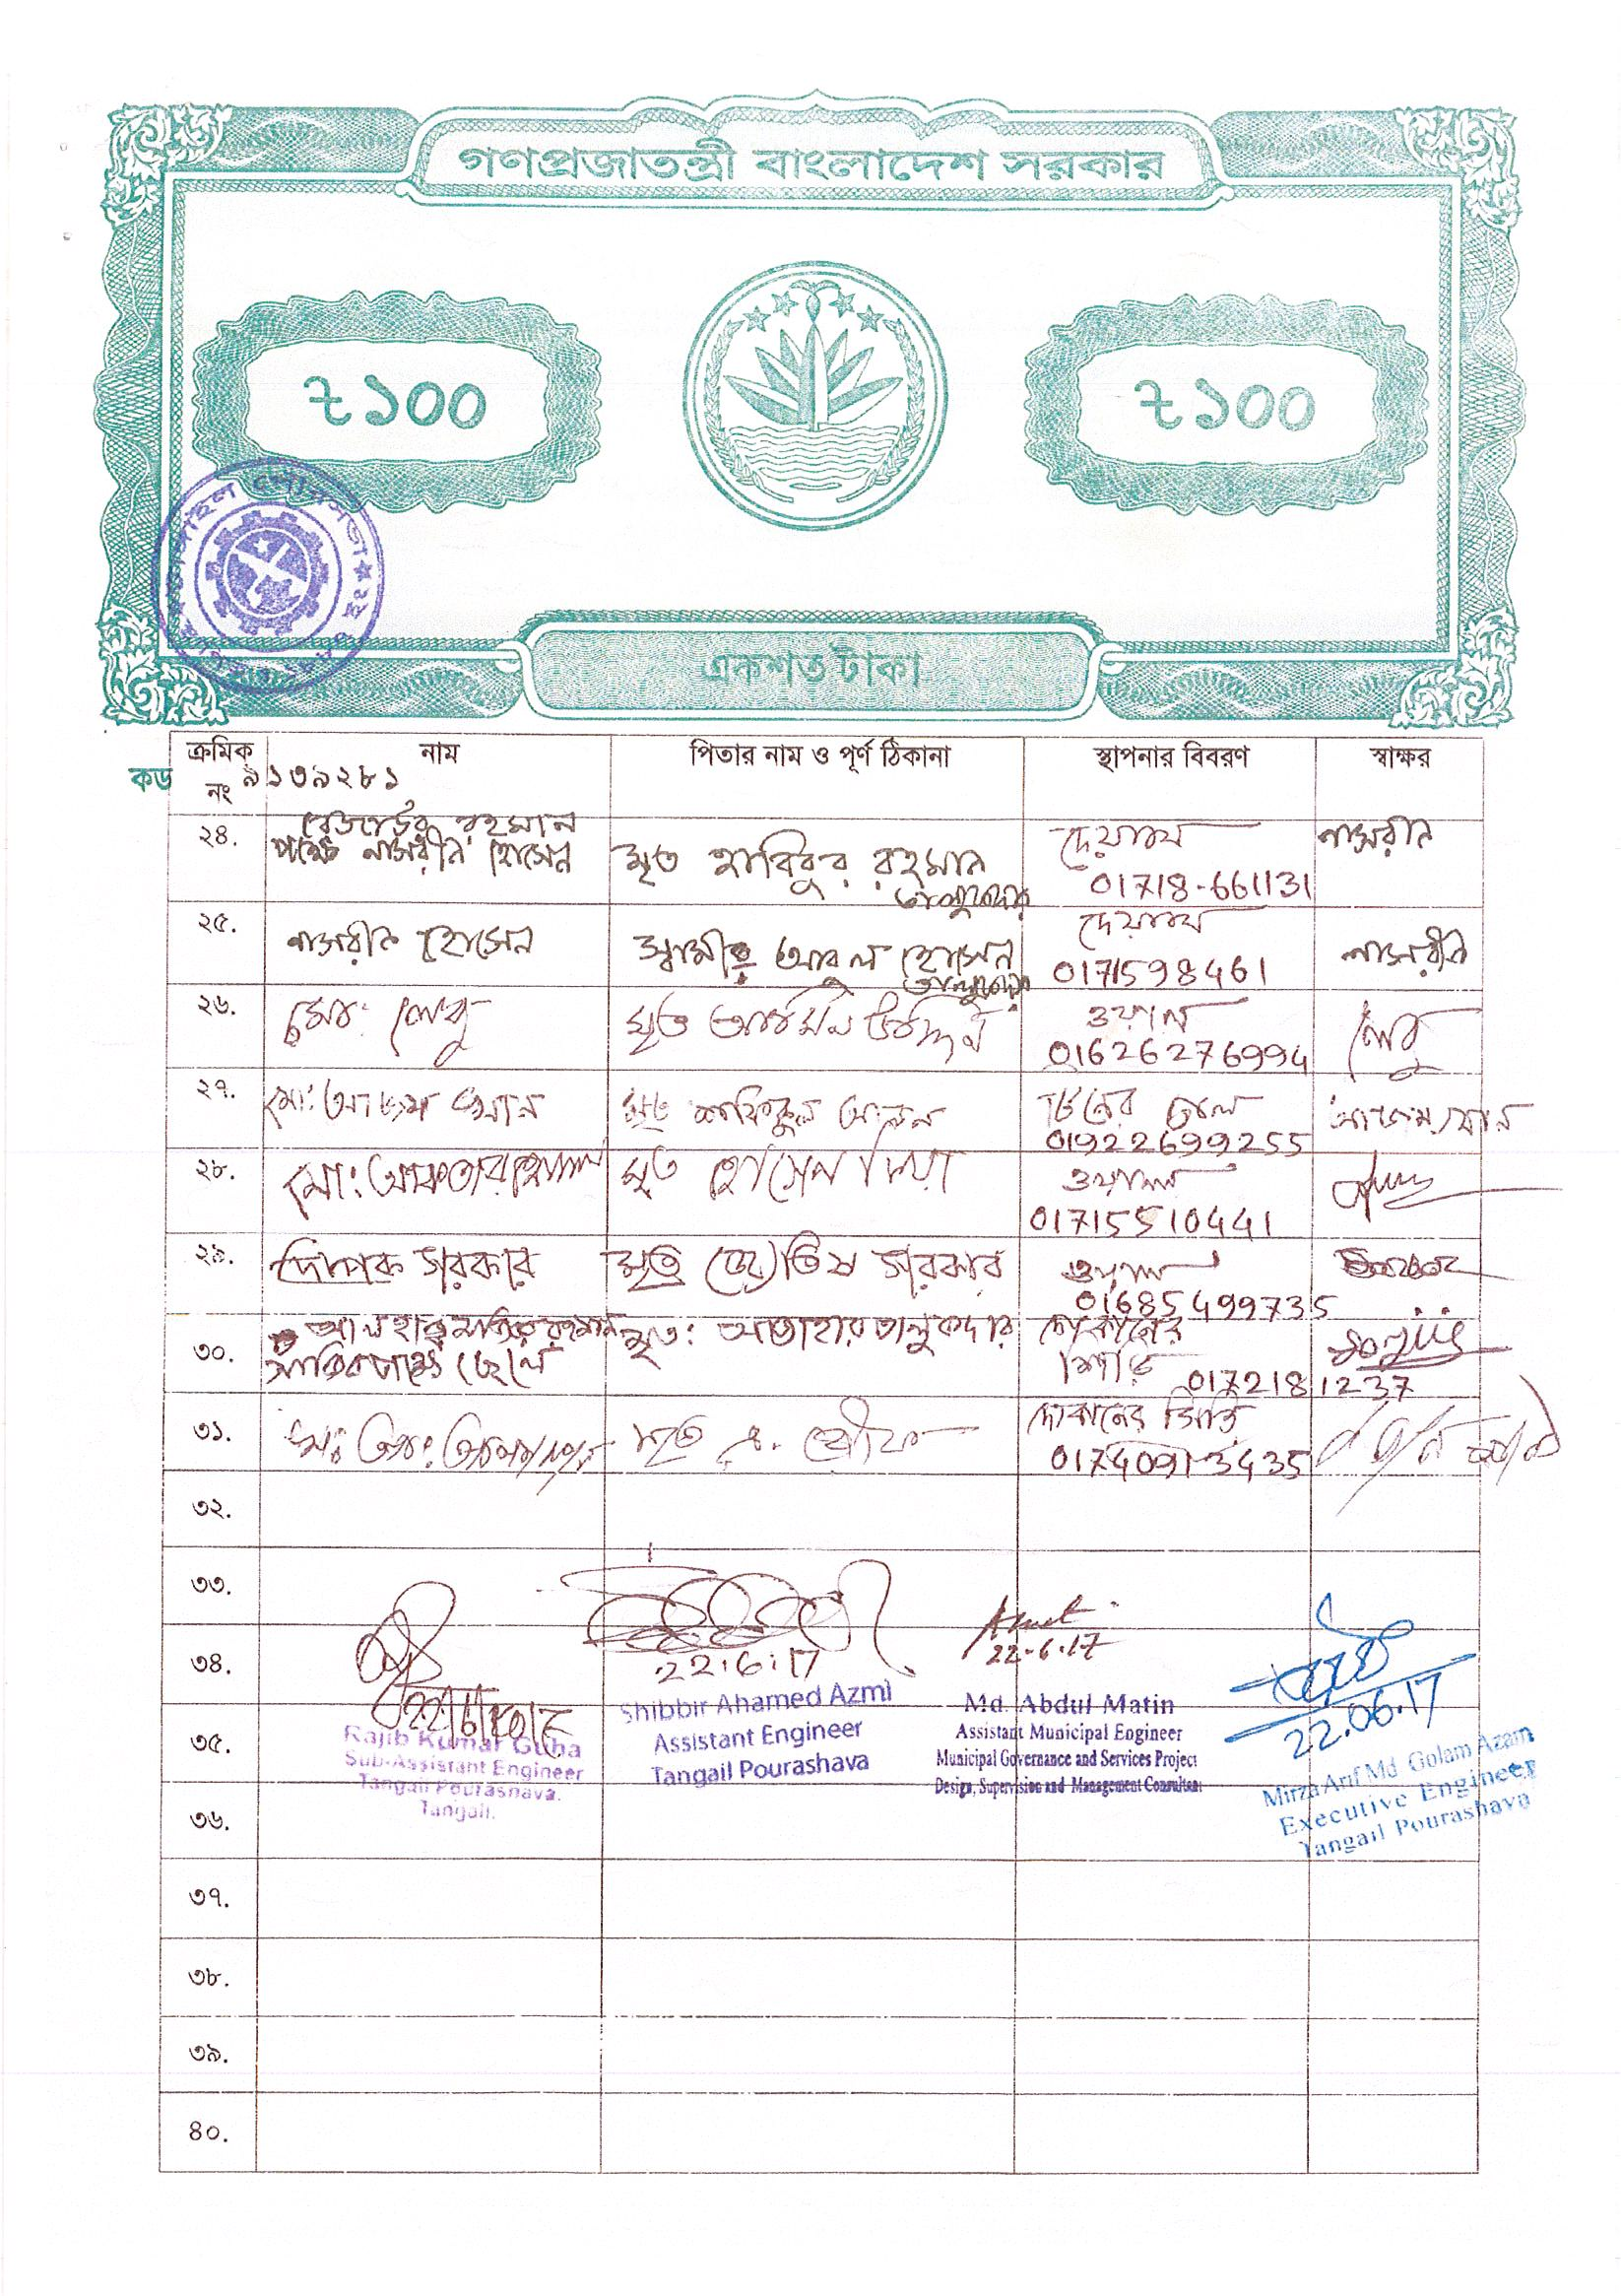 গণপ্রজাতন্ত্রী বাংলাদেশ সরকার
৳ ১০০
৳ ১০০
টাঙ্গাইল পৌরসভা
একশত টাকা
ক্রমিক নং
নাম
পিতার নাম ও পূর্ণ ঠিকানা
স্থাপনার বিবরণ
স্বাক্ষর
কড ৯১৩৯২৮১
২৪.
রহমান
পক্ষে নাসরীন হোসেন
মৃত হাবিবুর রহমান
তালুকদার
দেয়াল
01718-661131
নাসরীন
২৫.
নাসরীন হোসেন
স্বামীঃ আবুল হোসেন
তালুকদার
দেয়াল
0171598461
নাসরীন
২৬.
মোঃ লেবু
মৃত উদ্দিন
ওয়াল
01626276994
লেবু
২৭.
মোঃ আজম খান
মৃত শফিকুল আলম
টিনের চাল
01922699255
আজম খান
২৮.
মোঃ
মৃত হোসেন মিয়া
ওয়াল
01715510441
২৯.
দীপক সরকার
মৃত জ্যোতিষ সরকার
ওয়াল
01685499735
৩০.
আলহাজ্ব মতিউর রহমান
ছেলে
মৃত: আতাহার তালুকদার
দোকানের
সিঁড়ি
01721812 37
৩১.
মৃত
দোকানের সিঁড়ি
01740913435
৩২.
৩৩.
৩৪.
22.6.17
22.6.17
22.06.17
৩৫.
Rajib Kumar Guha
Sub-Assistant Engineer
Tangail Pourashava.
Tangail.
Shibbir Ahamed Azmi
Assistant Engineer
Tangail Pourashava
Md. Abdul Matin
Assistant Municipal Engineer
Municipal Governance and Services Project
Design, Supervision and Management Consultant
Mirza Arif Md. Golam Azam
Executive Engineer
Tangail Pourashava
৩৬.
৩৭.
৩৮.
৩৯.
৪০.